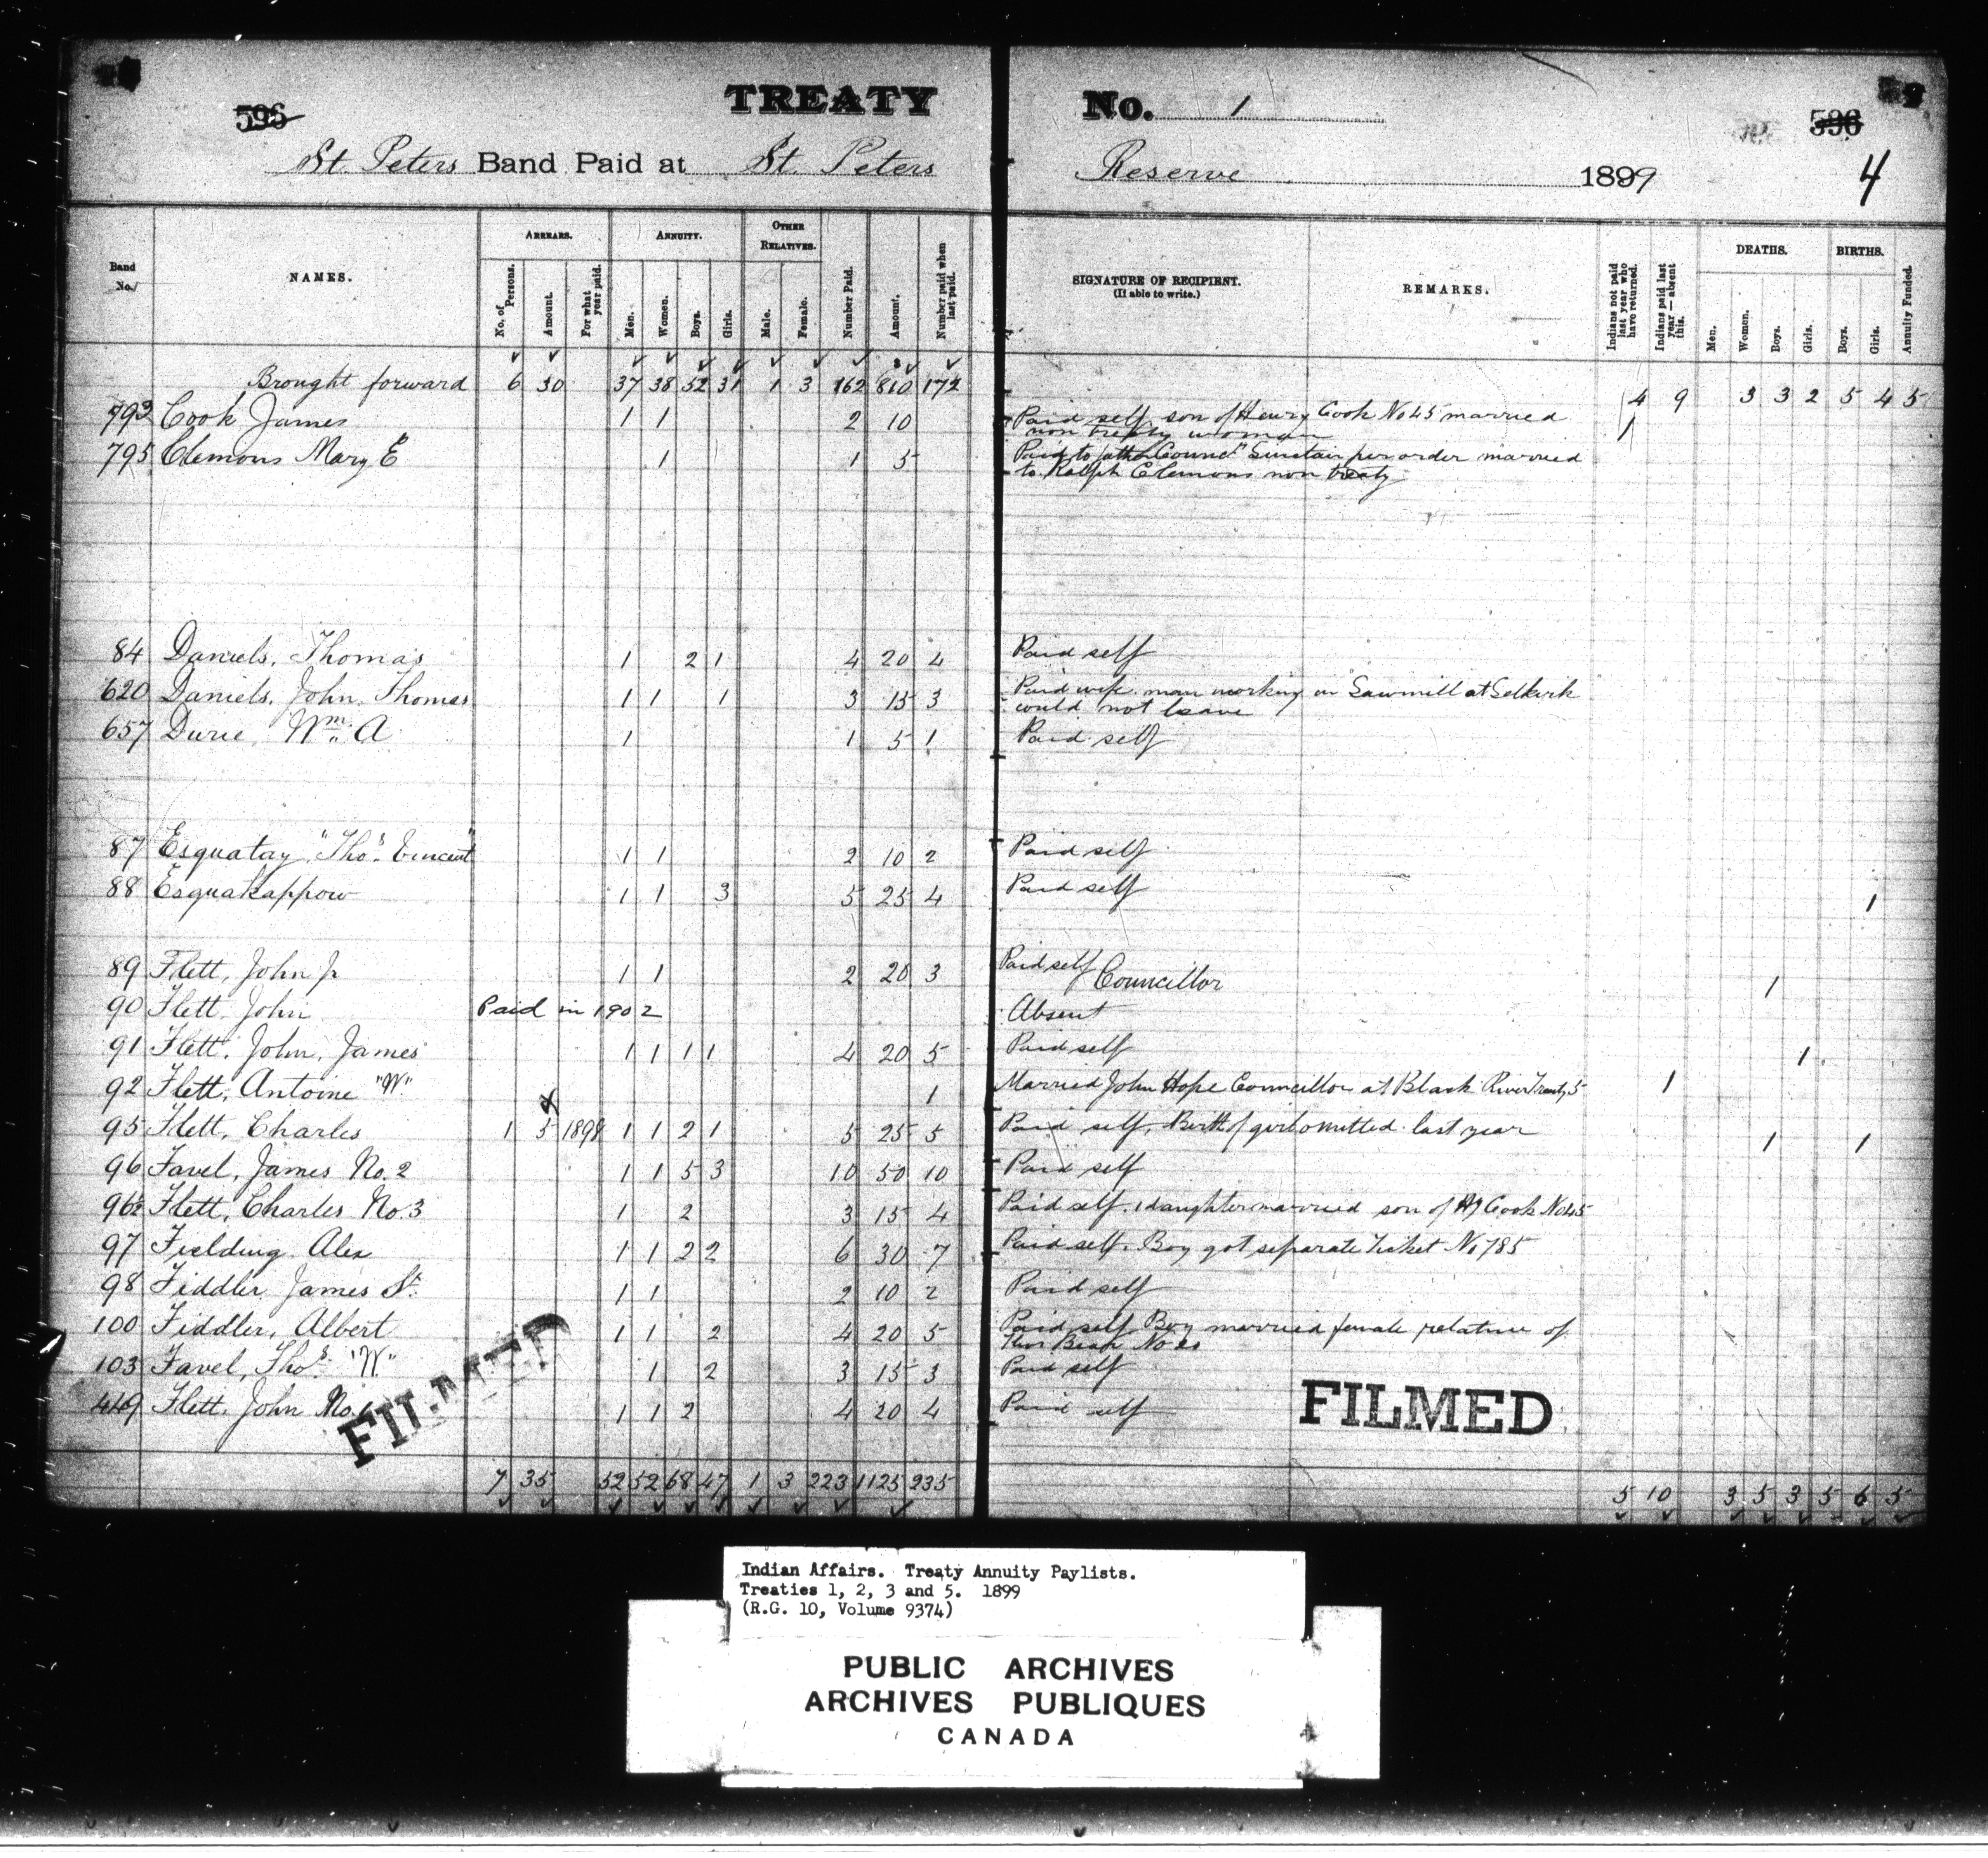 TREATY No. 1
596 596
St. Peters Band Paid at St. Peters Reserve 1899 4
Band No. NAMES. ARREARS. No. of Persons. Amount. For what year paid. ANNUITY. Men. Women. Boys. Girls. OTHER RELATIVES. Male. Female. Number Paid. Amount. Number paid when last paid. SIGNATURE OF RECIPIENT. (If able to write.) REMARKS. Indians not paid last year who have returned. Indians paid last year — absent this. DEATHS. Men. Women. Boys. Girls. BIRTHS. Boys. Girls. Annuity Funded.
Brought forward 6 30 37 38 52 31 1 3 162 810 172 4 9 3 3 2 5 4 5
793 Cook James 1 1 2 10 Paid self, son of Henry Cook No 45 married 1
non treaty woman
795 Clemons Mary E 1 1 5 Paid to father Counc. Sinclair per order married
to Ralph Clemons non treaty
84 Daniels, Thomas 1 2 1 4 20 4 Paid self
620 Daniels, John Thomas 1 1 1 3 15 3 Paid wife. man working in Sawmill at Selkirk
could not leave
657 Durie, Wm. A 1 1 5 1 Paid self
87 Esquatay, "Thos. Vincent" 1 1 2 10 2 Paid self
88 Esquakappow 1 1 3 5 25 4 Paid self 1
89 Flett, John Jr 1 1 2 20 3 Paid self Councillor 1
90 Flett, John Paid in 1902 Absent
91 Flett, John, James 1 1 1 1 4 20 5 Paid self 1
92 Flett, Antoine "W." 1 Married John Hope Councillor at Black River Treaty 5 1
95 Flett, Charles 1 5 1898 1 1 2 1 5 25 5 Paid self, Birth of girl omitted last year 1 1
96 Favel, James No. 2 1 1 5 3 10 50 10 Paid self
96½ Flett, Charles No. 3 1 2 3 15 4 Paid self. 1 daughter married son of Hy Cook No 45
97 Fielding Alex 1 1 2 2 6 30 7 Paid self. Boy got separate Ticket No 785
98 Fiddler, James Sr. 1 1 2 10 2 Paid self
100 Fiddler, Albert 1 1 2 4 20 5 Paid self Boy married female relative of
103 Favel, Thos. "W." 1 2 3 15 3 Paid self
449 Flett, John No. 1 1 2 4 20 4 Paid self
FILMED FILMED
7 35 52 52 68 47 1 3 223 1125 235 5 10 3 5 3 5 6 5
Indian Affairs. Treaty Annuity Paylists.
Treaties 1, 2, 3 and 5. 1899
(R.G. 10, Volume 9374)
PUBLIC ARCHIVES
ARCHIVES PUBLIQUES
CANADA